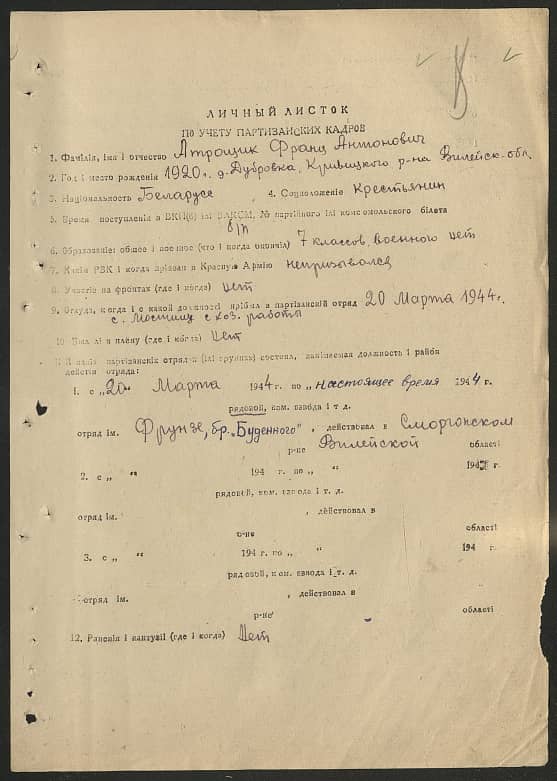 ЛИЧНЫЙ ЛИСТОК
ПО УЧЕТУ ПАРТИЗАНСКИХ КАДРОВ
1. Фамілія, імя і отчество Атрощик Франц Антонович
2. Год і место рождения 1920г. д. Дубровка, Кривицкого р-на Вилейск. обл.
3. Національность Беларусс 4. Соцположение Крестьянин
5. Время поступления в ВКП(б) ілі ВЛКСМ, № партійного ілі комсомольского білета
б/п
6. Образование: общее і военное (кто і когда окончіл) 7 классов, военного нет
7. Каким РВК і когда прізван в Красную Армію непризывался
8. Участіе на фронтах (где і когда) нет
9. Откуда, когда і с какой должності прібыл в партізанскій отряд 20 Марта 1944г.
с. Мостищу с хоз. работы
10. Был лі в плену (где і когда) нет
11. В каких партізанскіх отрядах (ілі группах) состоял, занімаемая должность і район
действія отряда:
1. с „20" Марта 1944 г. по „настоящее время 1944 г.
рядовой, ком. взвода і т. д.
отряд ім. Фрунзе, бр. „Буденного" , действовал в Сморгонском
р-не Вилейской області
2. с „ " 194 г. по „ " 194 г.
рядовой, ком. взвода і т. д.
отряд ім. , действовал в
р-не області
3. с „ " 194 г. по „ " 194 г.
рядовой, ком. взвода і т. д.
отряд ім. , действовал в
р-не області
12. Ранения і контузіі (где і когда) Нет